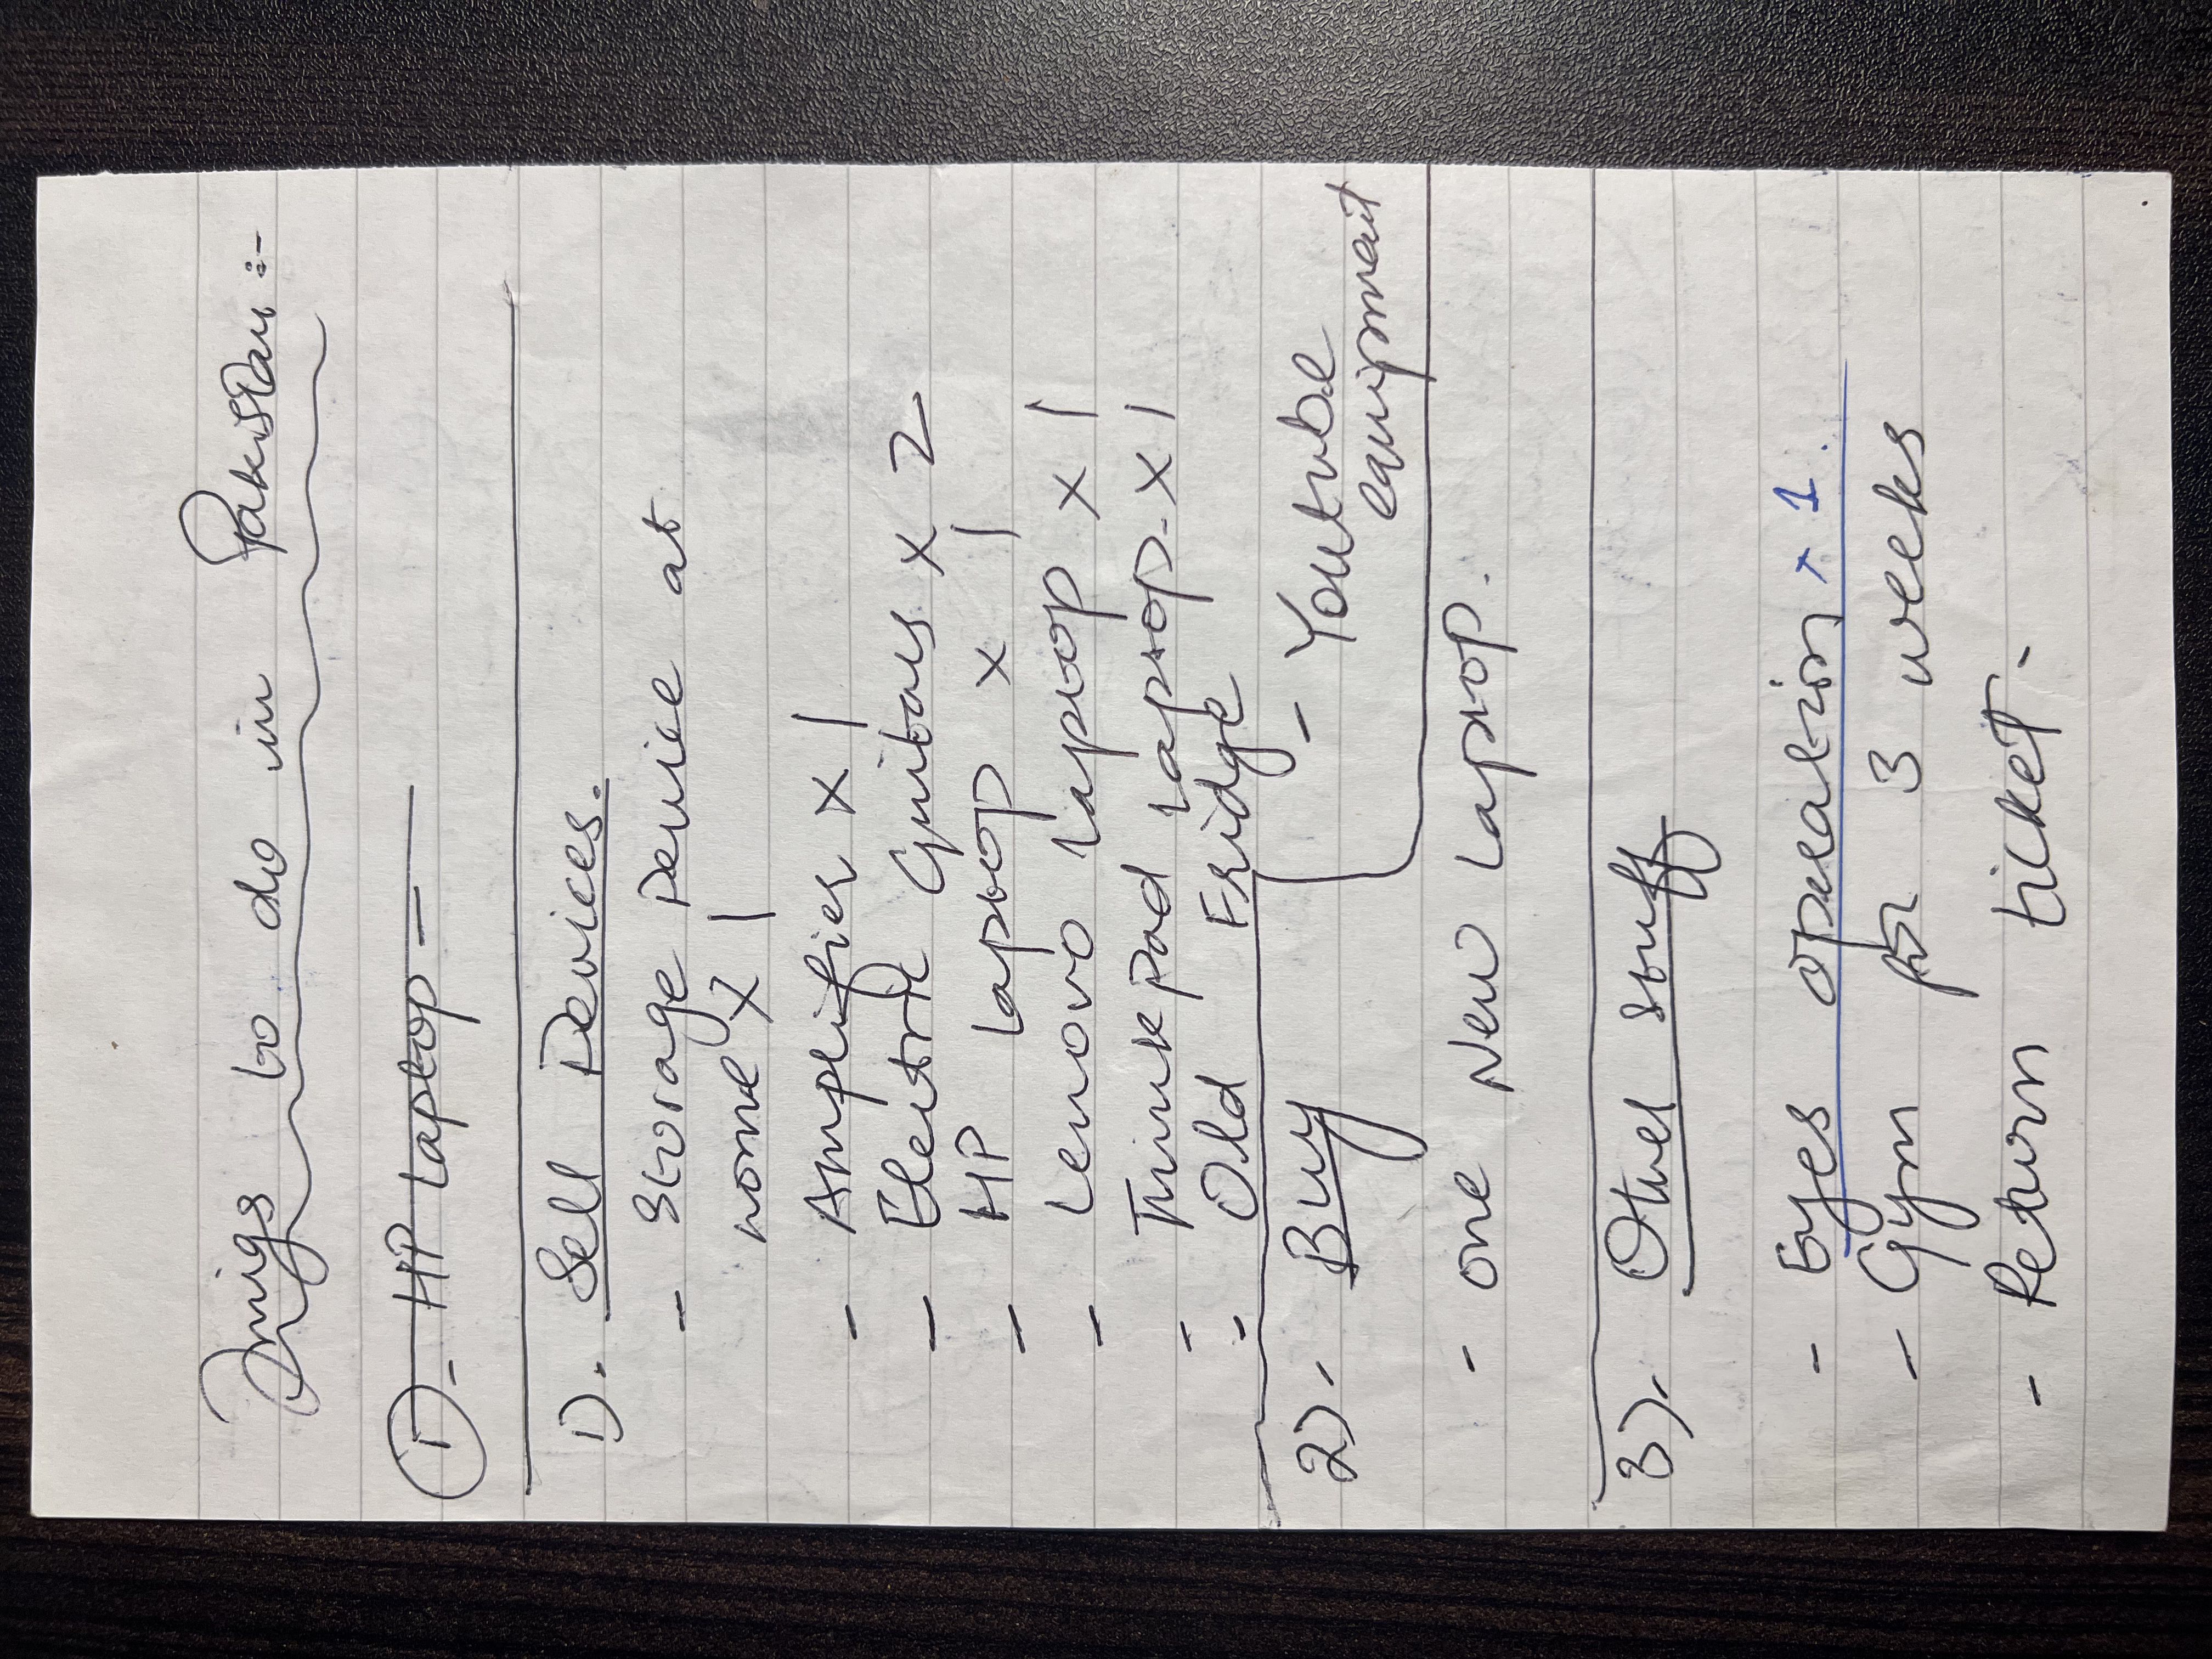 Things to do in Pakistan :-
1)- HP Laptop -
1). Sell Devices.
- Storage Device at
home x 1
- Amplifier x 1
- Electric Guitars x 2
- HP Laptop x 1
- Lenovo Laptop x 1
- Think Pad Laptop - x 1
- Old Fridge
2). Buy
- Youtube
equipment
- one New Laptop.
3). Other stuff
- Eyes operation x 1.
- Gym for 3 weeks
- Return ticket -